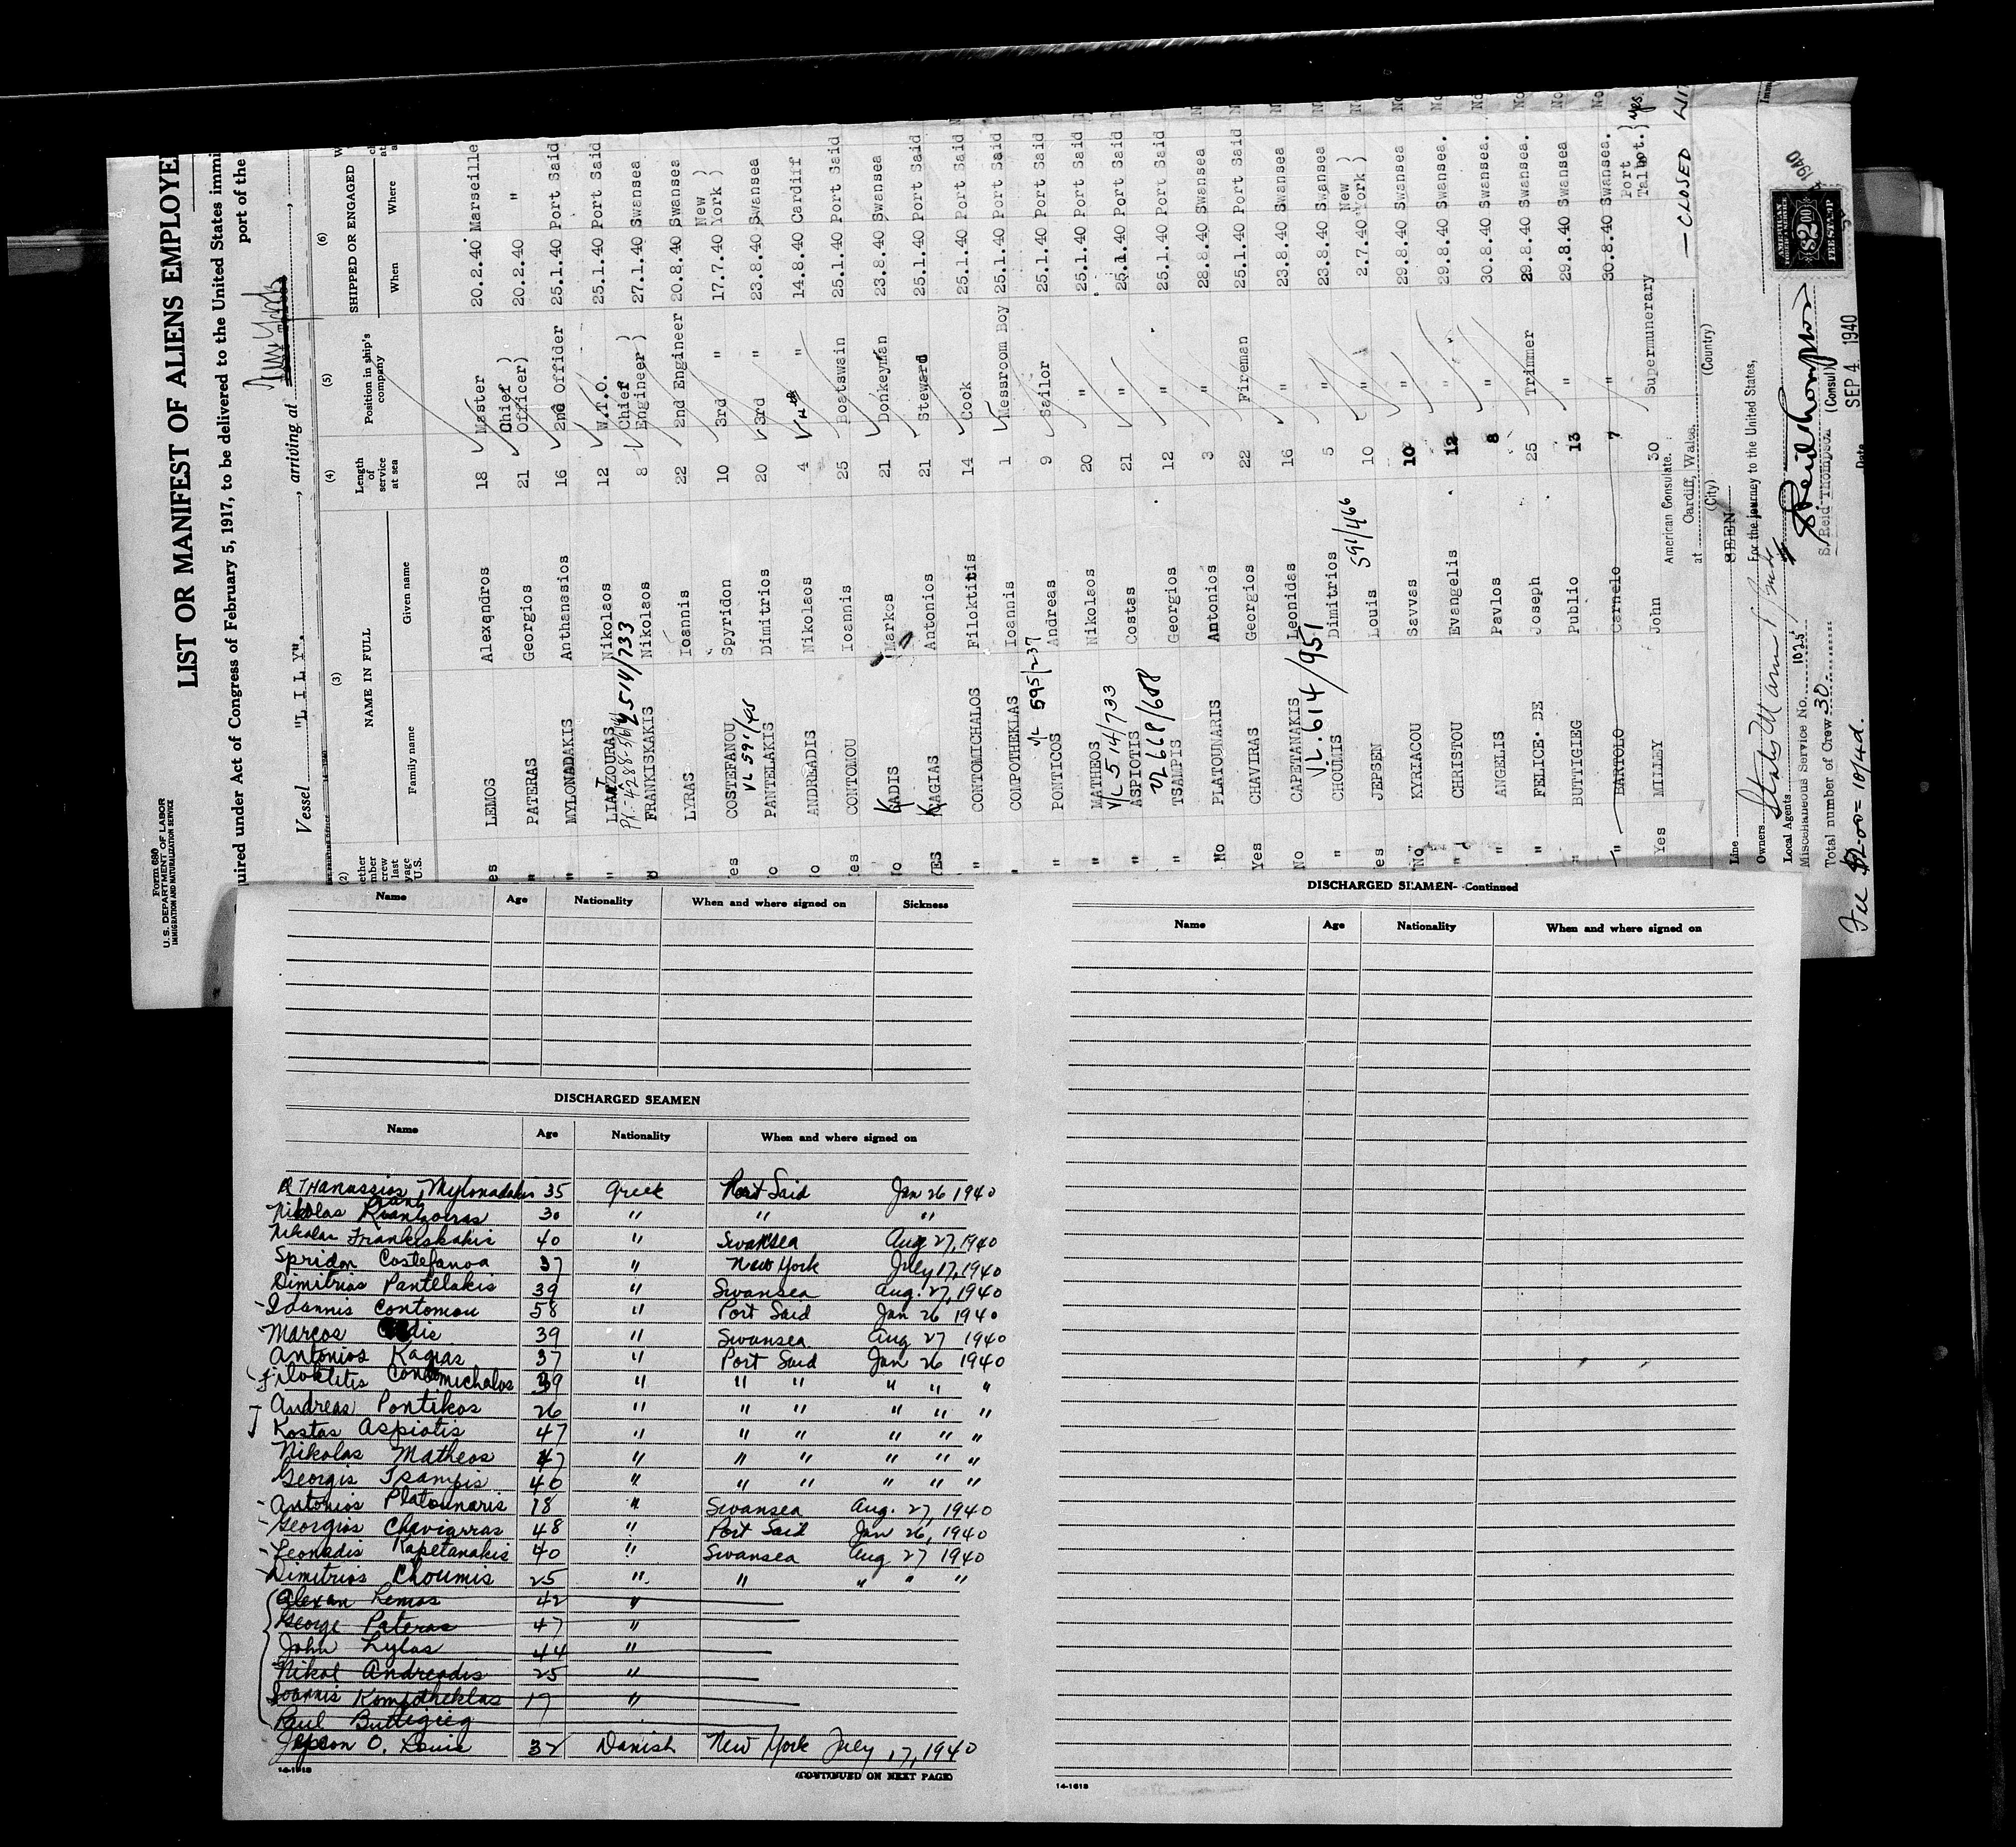 Form 680
U.S. DEPARTMENT OF LABOR
IMMIGRATION AND NATURALIZATION SERVICE
LIST OR MANIFEST OF ALIENS EMPLOYE
quired under Act of Congress of February 5, 1917, to be delivered to the United States immi
port of the
Vessel "L I L Y". , arriving at New York ,
(2) (3) (4) (5) (6)
NAME IN FULL Length of service at sea Position in ship's company SHIPPED OR ENGAGED
Family name Given name When Where
es LEMOS Alexandros 18 Master 20.2.40 Marseille
" PATERAS Georgios 21 Chief Officer) 20.2.40 "
" MYLONADAKIS Anthanasios 16 2nd Offider 25.1.40 Port Said
LIANTZOURAS Nikolaos 12 W.T.O. 25.1.40 Port Said
514/733
FRANKISKAKIS Nikolaos 8 Chief Engineer ) 27.1.40 Swansea
LYRAS Ioannis 22 2nd Engineer 20.8.40 Swansea
es COSTEFANOU Spyridon 10 3rd " 17.7.40 New York )
VL 591/45
o PANTELAKIS Dimitrios 20 3rd " 23.8.40 Swansea
o ANDREADIS Nikolaos 4 4th " 14.8.40 Cardiff
es CONTOMOU Ioannis 25 Boatswain 25.1.40 Port Said
No KADIS Markos 21 Donkeyman 23.8.40 Swansea
YES KAGIAS Antonios 21 Steward 25.1.40 Port Said
" CONTOMICHALOS Filoktitis 14 Cook 25.1.40 Port Said
" COMPOTHEKLAS Ioannis 1 Messroom Boy 25.1.40 Port Said
V/L 595/237
" PONTICOS Andreas 9 Sailor 25.1.40 Port Said
" MATHEOS Nikolaos 20 " 25.1.40 Port Said
V/L 514/733
" ASPIOTIS Costas 21 " 25.1.40 Port Said
VL 668/688
" TSAMPIS Georgios 12 " 25.1.40 Port Said
No PLATOUNARIS Antonios 3 " 28.8.40 Swansea
Yes CHAVIRAS Georgios 22 Fireman 25.1.40 Port Said
No CAPETANAKIS Leonidas 16 " 23.8.40 Swansea
V.L. 614/951
" CHOUMIS Dimitrios 5 " 23.8.40 Swansea
es JEPSEN Louis 591/466 10 " 2.7.40 New York )
"No" KYRIACOU Savvas 10 " 29.8.40 Swansea
" CHRISTOU Evangelis 12 " 29.8.40 Swansea.
" ANGELIS Pavlos 8 " 30.8.40 Swansea.
" FELICE. DE Joseph 25 Trimmer 29.8.40 Swansea.
" BUTTIGIEG Publio 13 " 29.8.40 Swansea
" BARTOLO Carnelo 7 " 30.8.40 Swansea.
Yes MILLEY John 30 Supermunerary Port Talbot.) yes
American Consulate.
at Cardiff, Wales,
(City) (Country)
— CLOSED
SEEN
Line
For the journey to the United States,
Owners
Local Agents
Miscellaneous Service No. 1025
S. Reid Thompson (Consul)
Total number of Crew 30
SEP 4 1940
Date
Fee $2.00 = 10/4d.
AMERICAN FOREIGN SERVICE $2.00 FEE STAMP
1940
Name Age Nationality When and where signed on Sickness
DISCHARGED SEAMEN
Name Age Nationality When and where signed on
Athanassios Mylonadakis 35 Greek Port Said Jan 26 1940
Nikolas 30 " " "
Nikolas Frankiskakis 40 " Swansea Aug 27, 1940
Spridon Costefanoa 37 " New York July 17, 1940
Dimitrios Pantelakis 39 " Swansea Aug. 27, 1940
Idannis Contomou 58 " Port Said Jan 26 1940
Marcos 39 " Swansea Aug 27 1940
Antonios Kagias 37 " Port Said Jan 26 1940
Filoktitis Contomichalos 39 " " " " " "
Andreas Pontikos 26 " " " " " "
Kostas Aspiotis 47 " " " " " "
Nikolas Matheos 47 " " " " " "
Georgis Tsampis 40 " " " " " "
Antonios Platounaris 18 " Swansea Aug. 27, 1940
Georgios Chaviarras 48 " Port Said Jan 26, 1940
Leonadis Kapetanakis 40 " Swansea Aug 27 1940
Dimitrios Choumis 25 " " " " "
Alexan Lemos 42 "
George Pateras 47 "
John Lylas 44 "
Nikol Andreadis 25 "
Ioannis Kompotheklas 17 "
Paul Buttigieg
Jepson O. Louis 32 Danish New York July 17, 1940
14-1618
(CONTINUED ON NEXT PAGE)
DISCHARGED SEAMEN- Continued
Name Age Nationality When and where signed on
14-1618